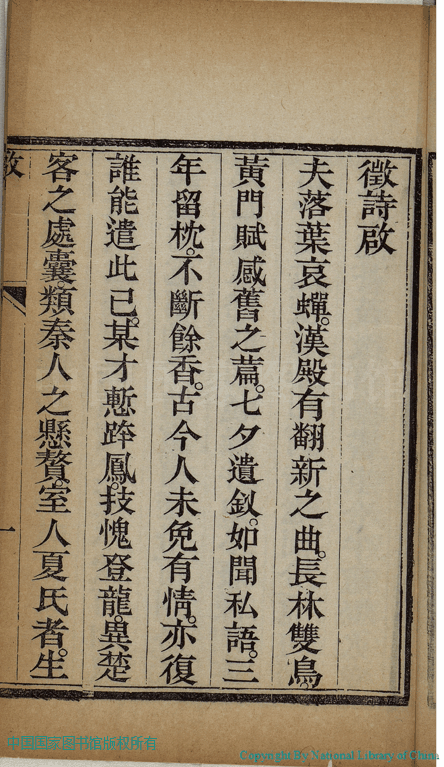 徵詩啟
夫落葉哀蟬。漢殿有翻新之曲。長林雙鳥。
黃門賦感舊之篇。七夕遺釵。如聞私語。三
年留枕。不斷餘香。古今人未免有情。亦復
誰能遣此已。某才慙踤鳳。技愧登龍。異楚
客之處囊。類秦人之懸贅。室人夏氏者。生
一
中国国家图书馆版权所有
Copyright By National Library of China